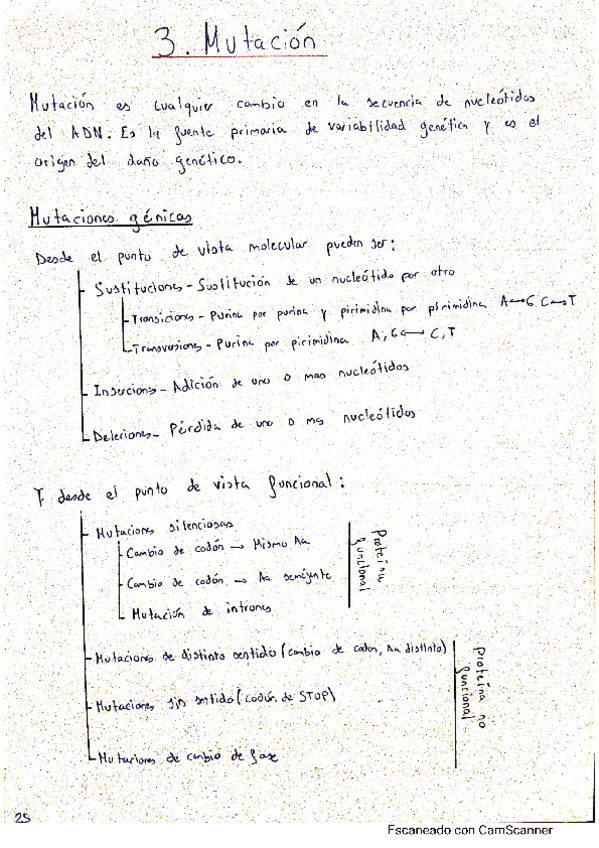 3. Mutación
Mutación es cualquier cambio en la secuencia de nucleótidos
del ADN. Es la fuente primaria de variabilidad genética y es el
origen del daño genético.
Mutaciones génicas
Desde el punto de vista molecular pueden ser:
Sustituciones - Sustitución de un nucleótido por otro
Transiciones - Purina por purina y pirimidina por pirimidina A↔G C↔T
Transversiones - Purina por pirimidina A, G ↔ C, T
Inserciones - Adición de uno o mas nucleótidos
Deleciones - Pérdida de uno o ms nucleótidos
Y desde el punto de vista funcional:
Mutaciones silenciosas
Cambio de codón → Mismo Aa
Cambio de codón → Aa semejente
Mutación de intrones
Proteína
funcional
Mutaciones de distinto sentido (cambio de codon, Aa distinto)
Mutaciones sin sentido (codón de STOP)
Mutaciones de cambio de fase
Proteína no
funcional
25
Escaneado con CamScanner